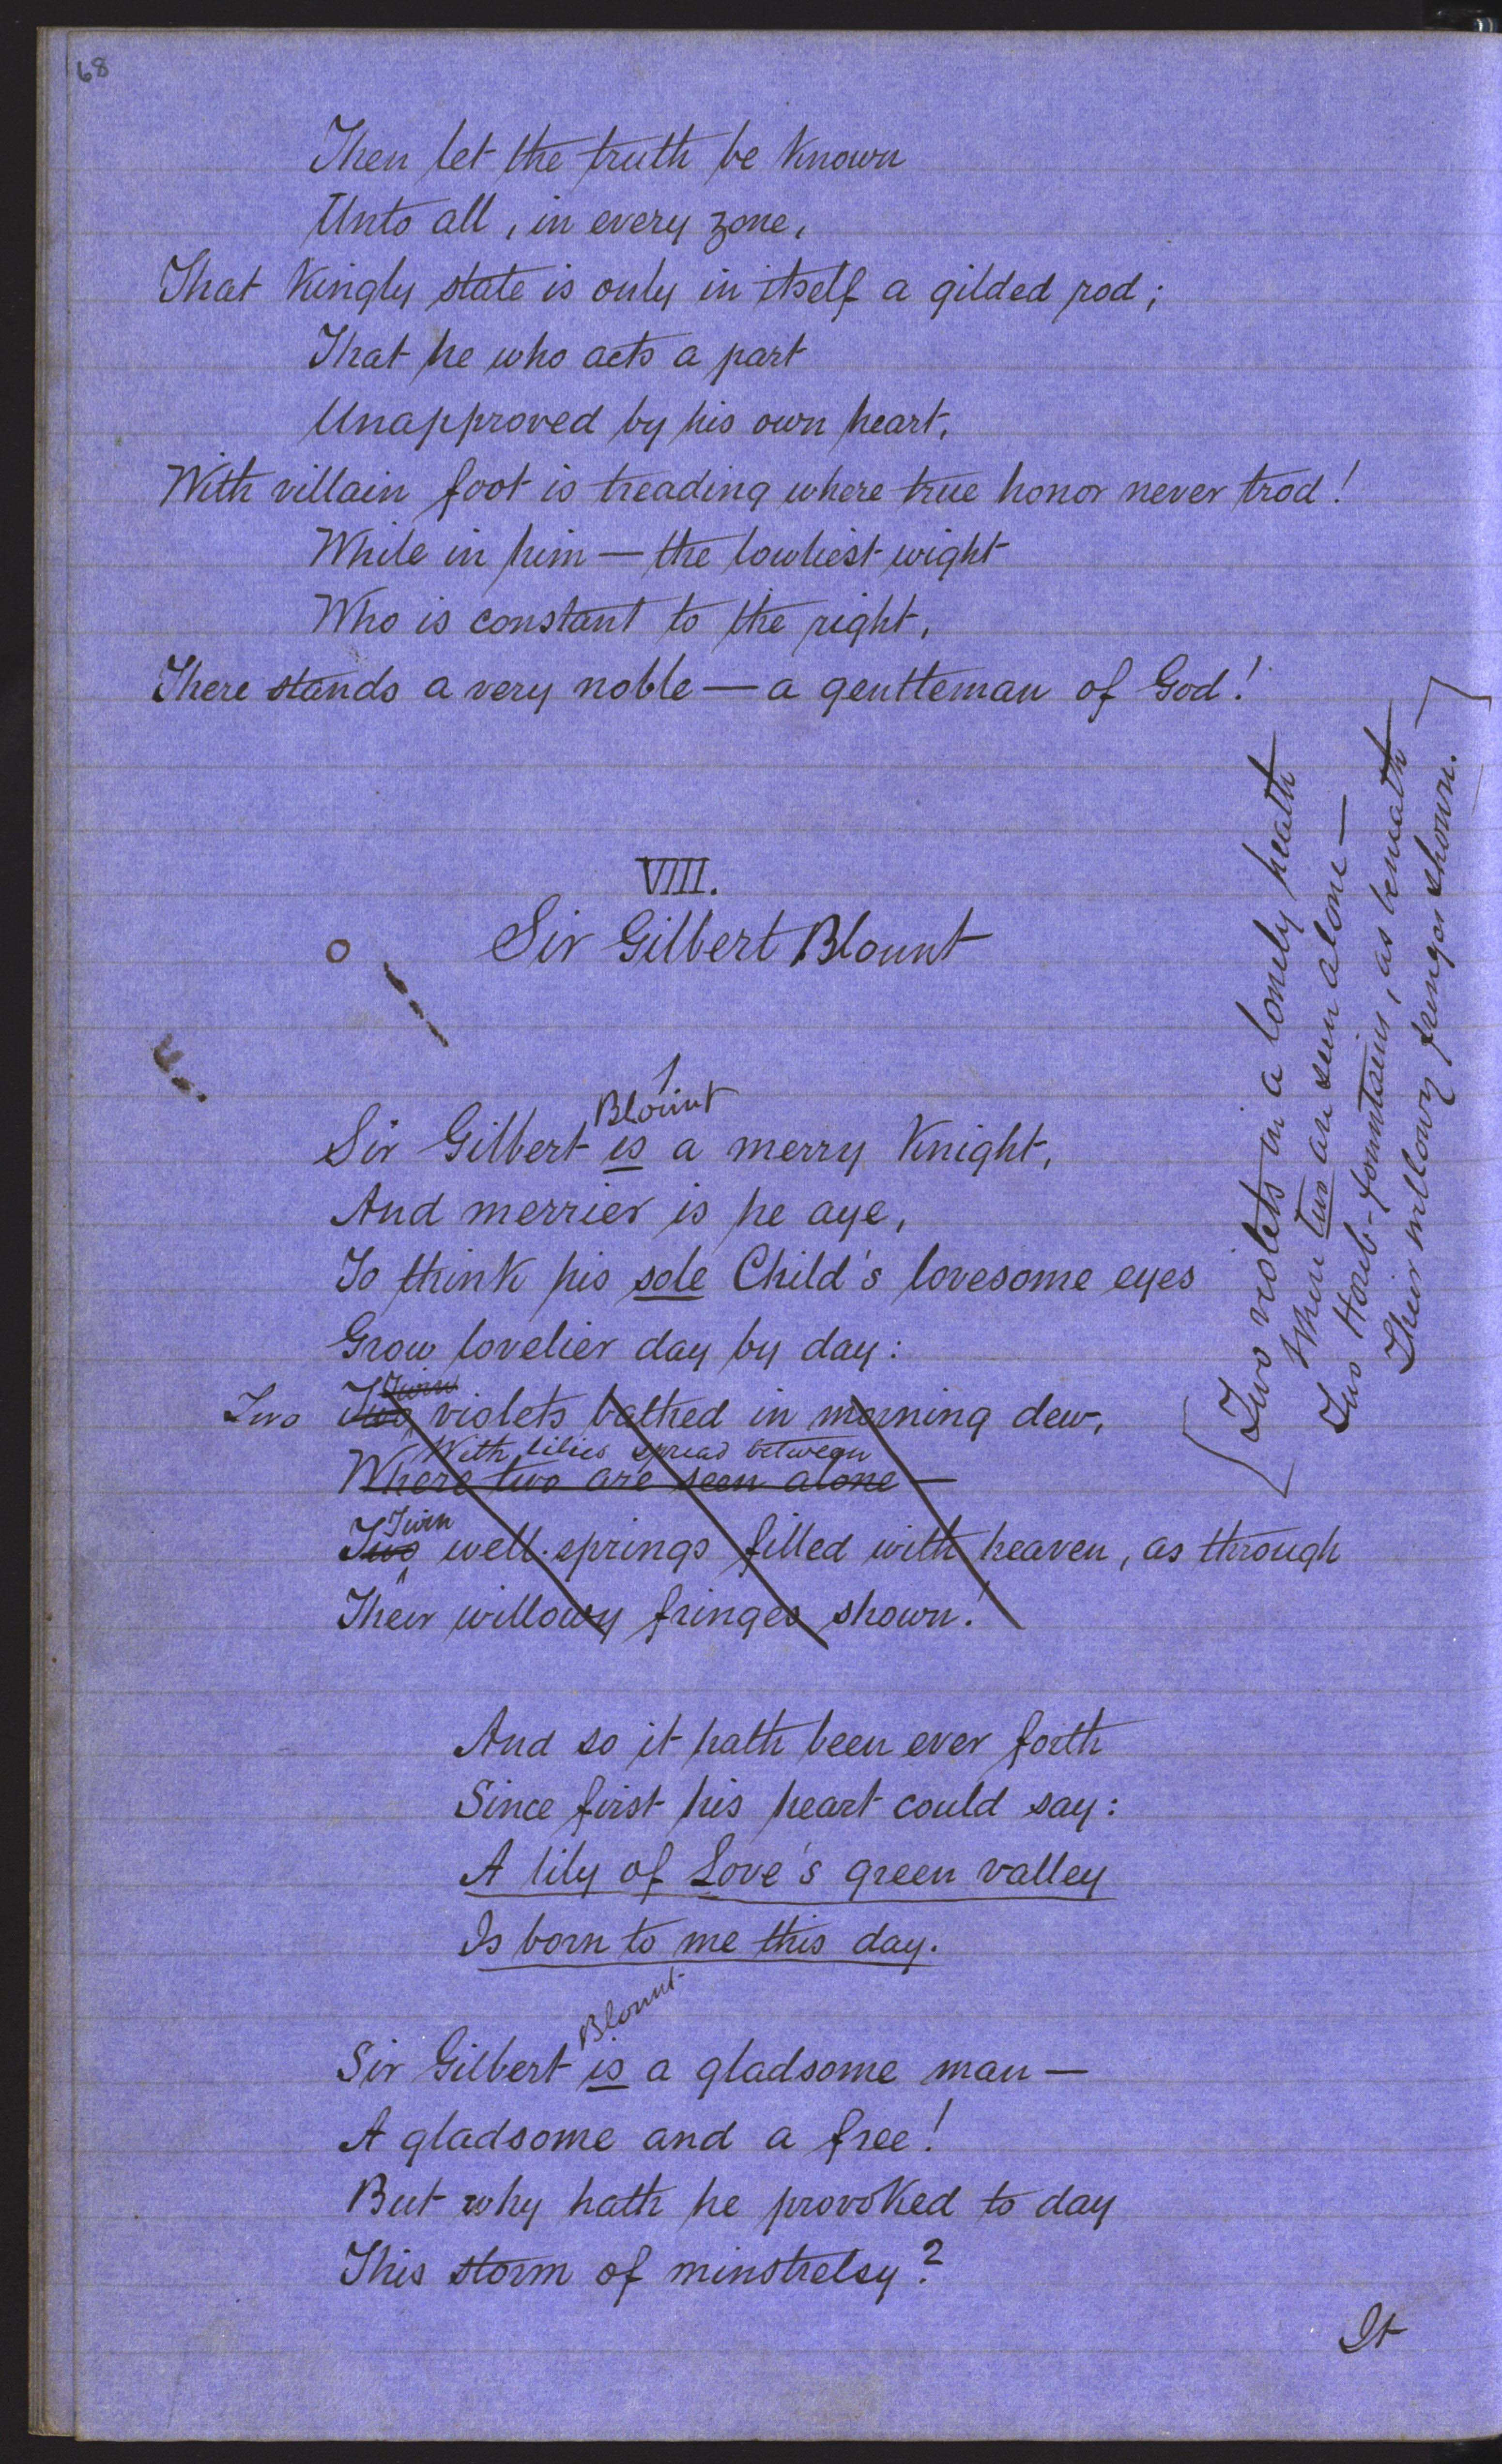 68
Then let the truth be known
Unto all, in every zone,
That kingly state is only in itself a gilded rod;
That he who acts a part
Unapproved by his own heart,
With villain foot is treading where true honor never trod!
While in him — the lowliest wight
Who is constant to the right,
There stands a very noble — a gentleman of God!
VIII.
Sir Gilbert Blount
1
Blount
Sir Gilbert is a merry Knight,
And merrier is he aye,
To think his sole Child's lovesome eyes
Grow lovelier day by day:
Twin
Two Two violets bathed in morning dew,
With lilies spread between
Where two are seen alone —
Twin
Two well-springs filled with heaven, as through
Their willowy fringes shown!
And so it hath been ever forth
Since first his heart could say:
A lily of Love's green valley
Is born to me this day.
Blount
Sir Gilbert is a gladsome man —
A gladsome and a free!
But why hath he provoked to day
This storm of minstrelsy?
It
Two violets in a lonely heath
When two are seen alone —
Two Horib-fountains, as beneath
Their willowy fringes shown.